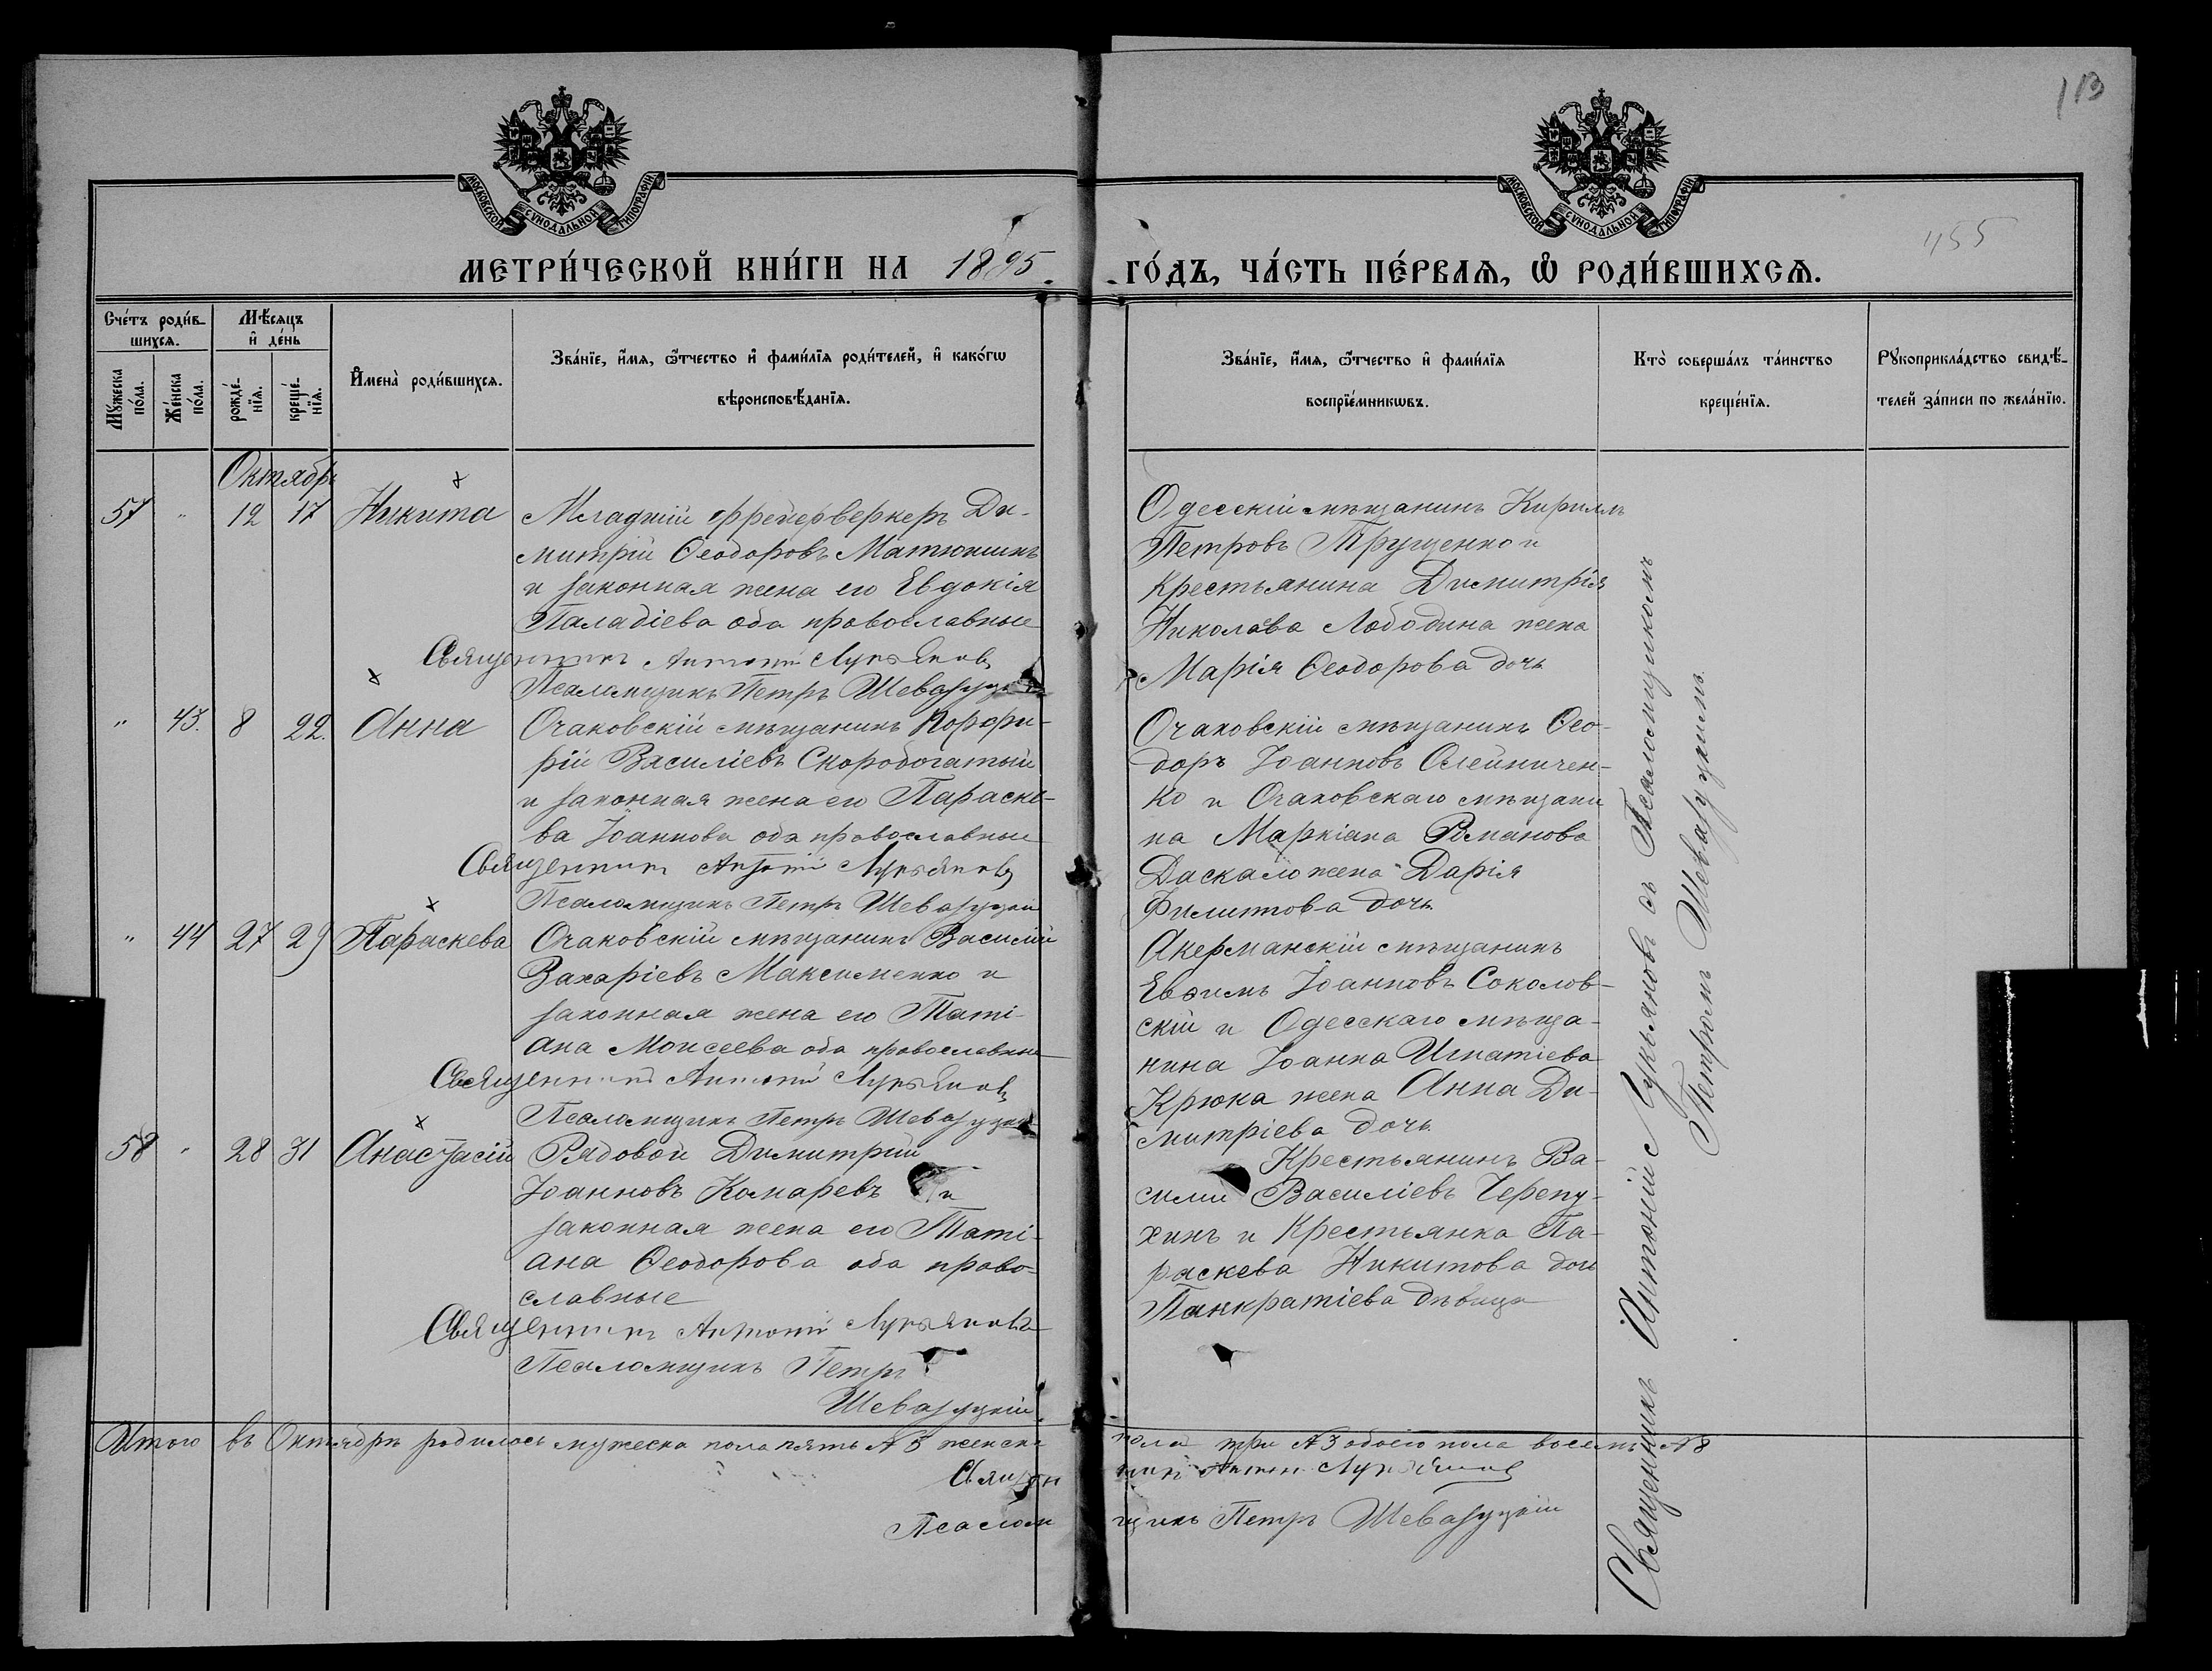 113
455
МОСКОВСКОЙ СѴНОДАЛЬНОЙ ТИПОГРАФІИ
МОСКОВСКОЙ СѴНОДАЛЬНОЙ ТИПОГРАФІИ
МЕТРИ́ЧЕСКОЙ КНИ́ГИ НА 1895 ГО́ДЪ, ЧА́СТЬ ПЕ́РВАѦ, Ѽ РОДИ́ВШИХСѦ.
Сче́тъ роди́в-
шихсѧ.
Мꙋ́жеска по́ла.
Же́нска по́ла.
Мѣ́сяцъ
и҆ де́нь
рожде́-
нїѧ.
креще́-
нїѧ.
И҆мена̀ роди́вшихсѧ.
Зва́нїе, и҆́мѧ, ѻ҆́тчество и҆ фами́лїѧ роди́телей, и҆ како́гѡ
вѣроисповѣ́данїѧ.
Зва́нїе, и҆́мѧ, ѻ҆́тчество и҆ фами́лїѧ
воспрїе́мникѡвъ.
Кто̀ соверша́лъ та́инство
креще́нїѧ.
Рꙋкоприкла́дство свидѣ́-
телей за́писи по жела́нїю.
Октябрь
57 " 12 17 Никита Младшій фрейерверкеръ Ди-
митрій Ѳеодоровъ Матюшинъ
и законная жена его Евдокія
Паладіева оба православные
Священникъ Антоній Лукьяновъ
Псаломщикъ Петръ Шевазуцкій
Одесскій мѣщанинъ Кириллъ
Петровъ Трущенко и
Крестьянина Димитрія
Николаева Лободина жена
Марія Ѳеодорова дочь
" 43. 8 22. Анна Очаковскій мѣщанинъ Порфи-
рій Василіевъ Скоробогатый
и законная жена его Параске-
ва Іоаннова оба православные
Священникъ Антоній Лукьяновъ
Псаломщикъ Петръ Шевазуцкій
Очаковскій мѣщанинъ Ѳео-
доръ Іоанновъ Олейничен-
ко и Очаковскаго мѣщани
на Маркіана Романова
Даскало жена Дарія
Филиппова дочь
" 44 27 29 Параскева Очаковскій мѣщанинъ Василій
Захаріевъ Максименко и
законная жена его Таті-
ана Моисеева оба православные
Священникъ Антоній Лукьяновъ
Псаломщикъ Петръ Шевазуцкій
Акерманскій мѣщанинъ
Евѳимъ Іоанновъ Соколов-
скій и Одесскаго мѣща-
нина Іоанна Игнатіева
Крюка жена Анна Ди-
митріева дочь
58 " 28 31 Анастасій Рядовой Димитрій
Іоанновъ Комаревъ и
законная жена его Таті-
ана Ѳеодорова оба право-
славные
Священникъ Антоній Лукьяновъ
Псаломщикъ Петръ
Шевазуцкій
Крестьянинъ Ва-
силій Василіевъ Черепу-
хинъ и Крестьянка Па-
раскева Никитова дочь
Панкратіева дѣвица
Священникъ Антоній Лукьяновъ съ Псаломщикомъ
Петромъ Шевазуцкимъ
Итого въ Октябрѣ родилось мужеска пола пять № 5 женска пола три № 3 обоего пола восемь № 8
Священникъ Антоній Лукьяновъ
Псаломщикъ Петръ Шевазуцкій